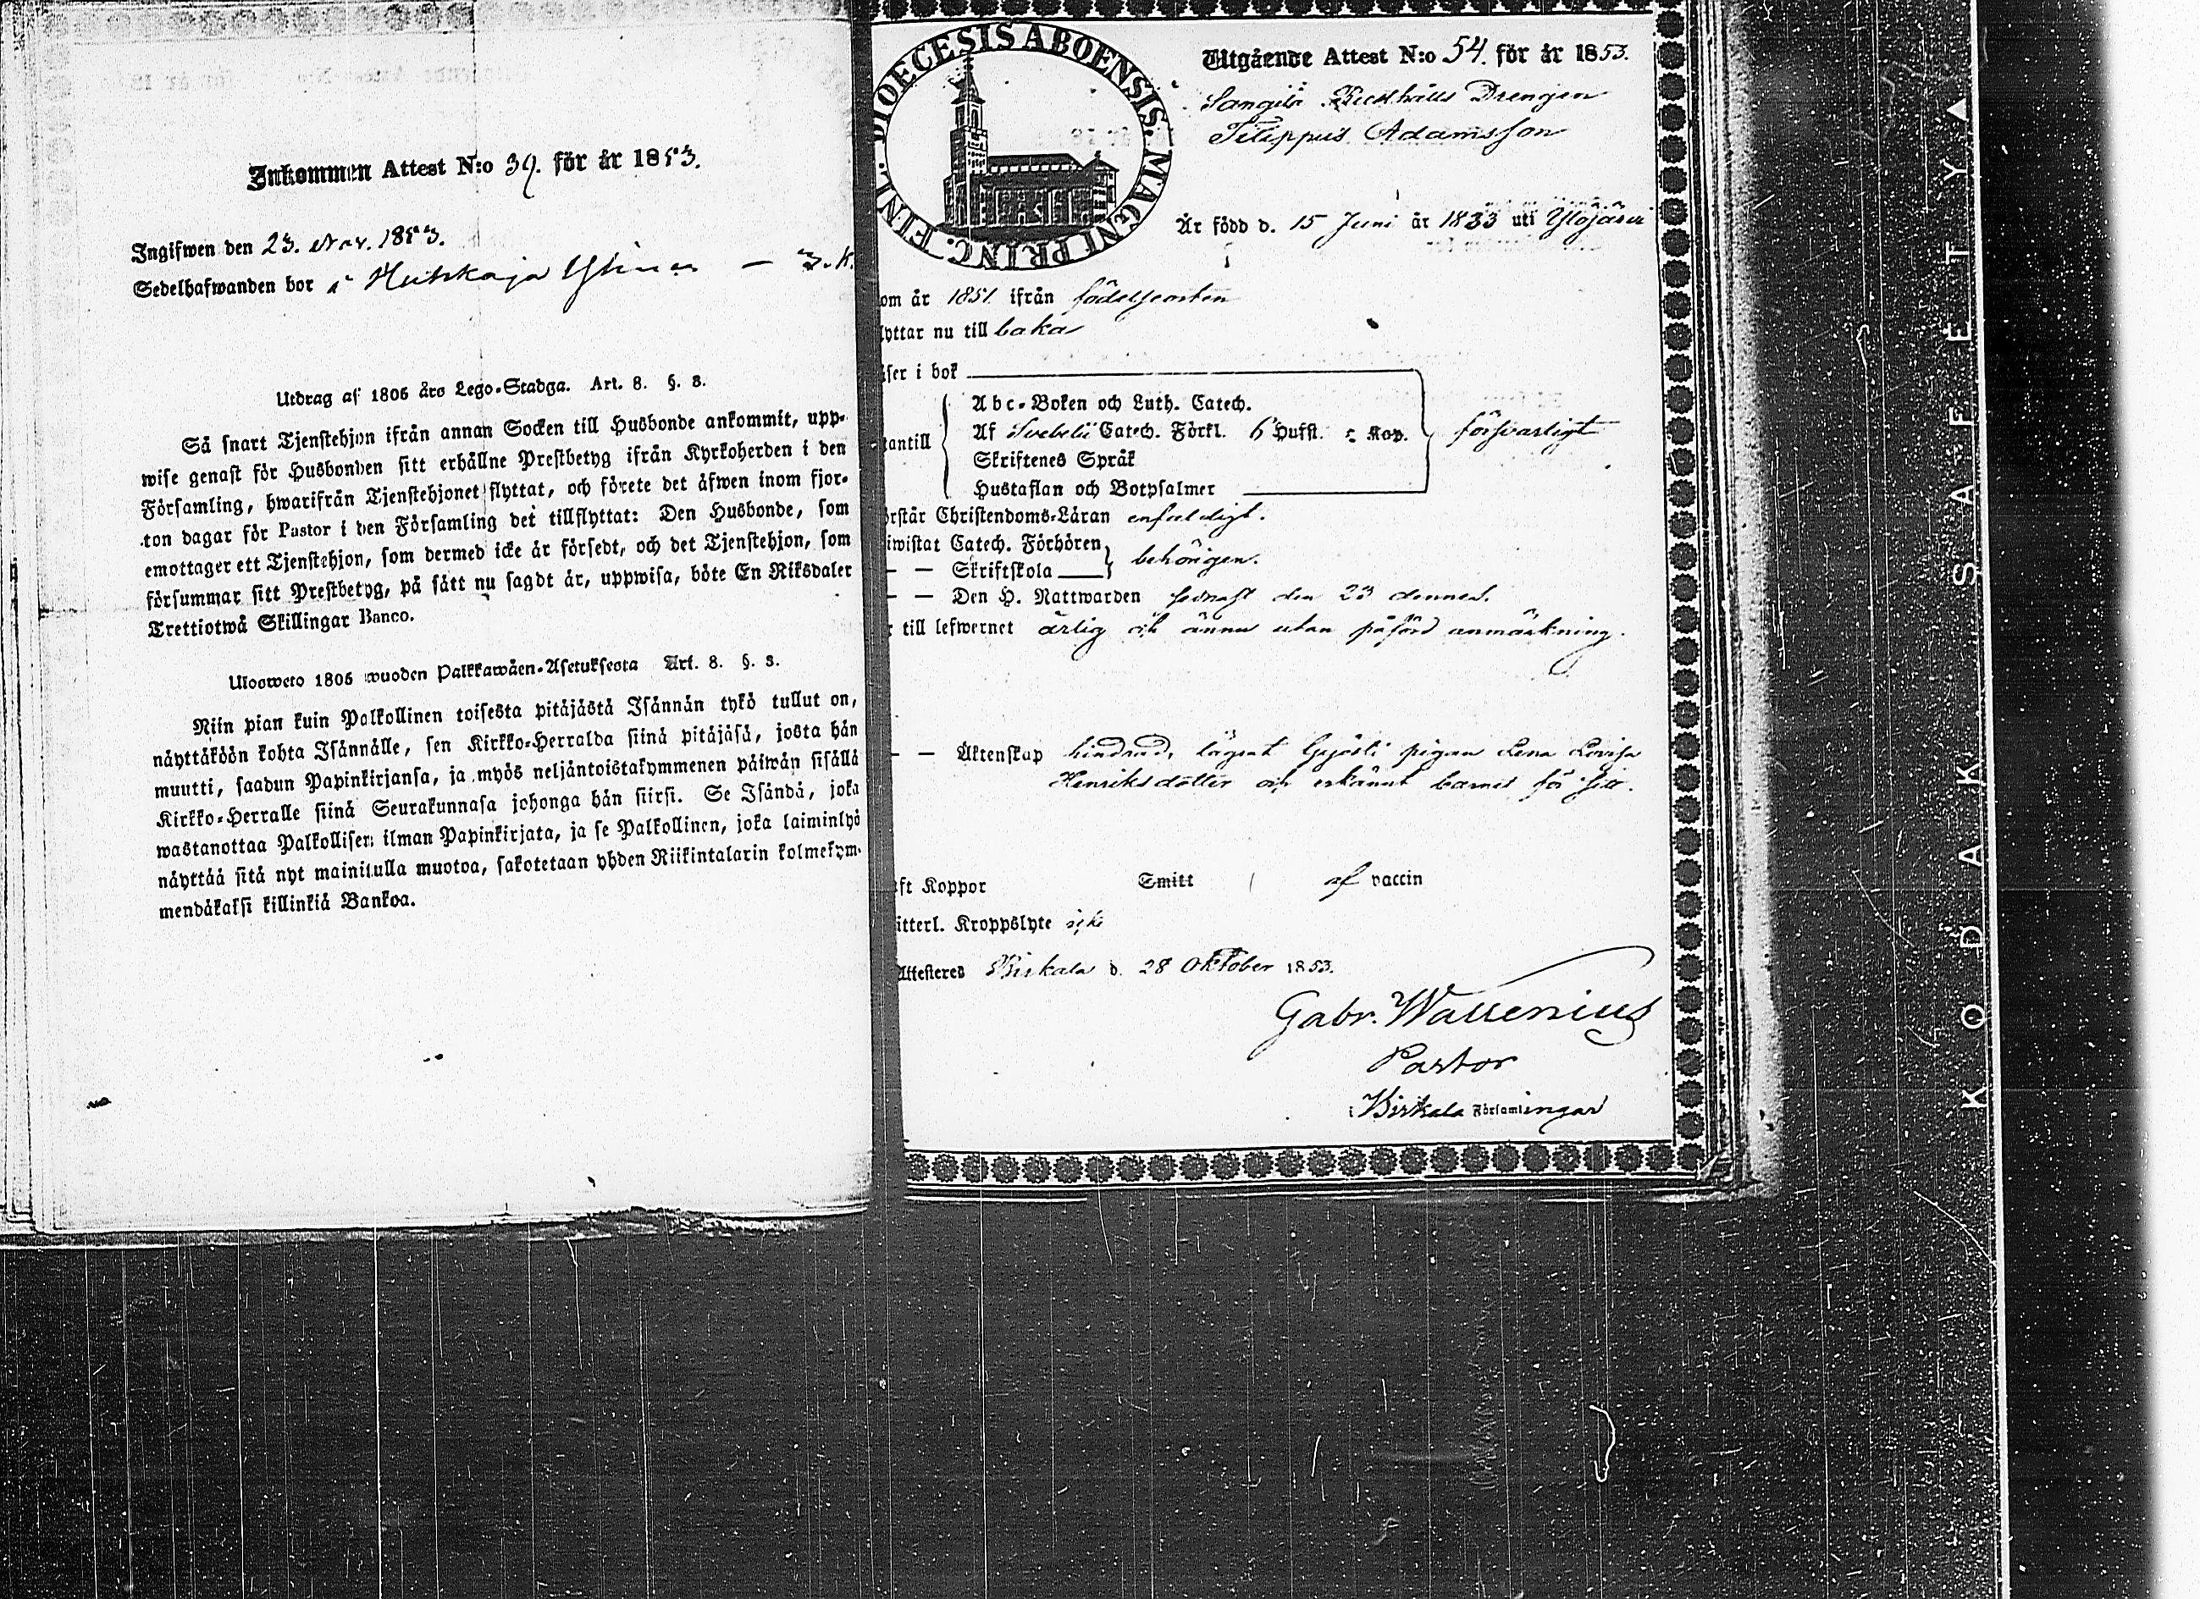 Inkommen Attest N:o 39. för år 1853.
Ingifwen den 23. Nov. 1853.
Sedelhafwanden bor i
Utdrag af 1805 års Lego-Stadga. Art. 8. §. 3.
Så snart Tjenstehjon ifrån annan Socken till Husbonde ankommit, upp-
wise genast för Husbonden sitt erhållne Prestbetyg ifrån Kyrkoherden i den
Församling, hwarifrån Tjenstehjonet flyttat, och förete det äfwen inom fjor-
ton dagar för Pastor i den Församling det tillflyttat: Den Husbonde, som
emottager ett Tjenstehjon, som dermed icke är försedt, och det Tjenstehjon, som
försummar sitt Prestbetyg, på sätt nu sagdt är, uppwisa, böte En Riksdaler
Trettiotwå Skillingar Banco.
Uloosweto 1805 wuoden Palkkawäen-Asetuksesta Art. 8. §. 3.
Niin pian kuin Palkollinen toisesta pitäjästä Isännän tykö tullut on,
näyttäköön kohta Isännälle, sen Kirkko-Herralda siinä pitäjäsä, josta hän
muutti, saadun Papinkirjansa, ja myös neljäntoistakymmenen päiwän sisällä
Kirkko-Herralle siinä Seurakunnasa johonga hän siirsi. Se Isändä, joka
wastanottaa Palkollisen ilman Papinkirjata, ja se Palkollinen, joka laiminlyö
näyttää sitä nyt mainitulla muotoa, sakotetaan yhden Riikintalarin kolmekym-
mendäkaksi killinkiä Bankoa.
DIOECESIS ABOENSIS. MAGNI PRINC. FINL.
Utgående Attest N:o 54. för år 1853.
Drengen
Filippus Adamsson
Är född d. 15 Juni år 1833 uti Ylöjärvi
om år 1851 ifrån födelseorten
lyttar nu till baka
äser i bok
Abc-Boken och Luth. Catech.
antill Af Svebelii Catech. Förkl. 6 Hufst. 5 Kap. försvarligt
Skriftenes Språk
Hustaflan och Botpsalmer
örstår Christendoms-Läran enfaldigt.
iwistat Catech. Förhören
— — Skriftskola behörigen.
— — Den H. Nattwarden senast den 23 dennes.
r till lefwernet ärlig och ännu utan påförd anmärkning.
— — Äktenskap hindrad, lägrat pigan Lena Lovisa
Henriksdotter och erkännt barnet för sitt.
aft Koppor Smitt af vaccin
itterl. Kroppslyte icke
Attesteres Birkala d. 28 Oktober 1853.
Gabr. Wallenius
Pastor
i Birkala Församlingar
KODAK SAFETY ▲